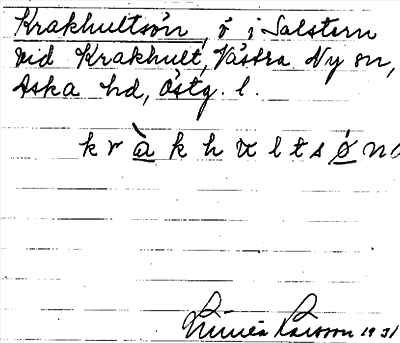 Krakhultsön, ö i Salstern
vid Krakhult, Västra Ny sn,
Aska hd, Östg. l.
k r à k h u l t s ø n
Linnéa Larsson 1931